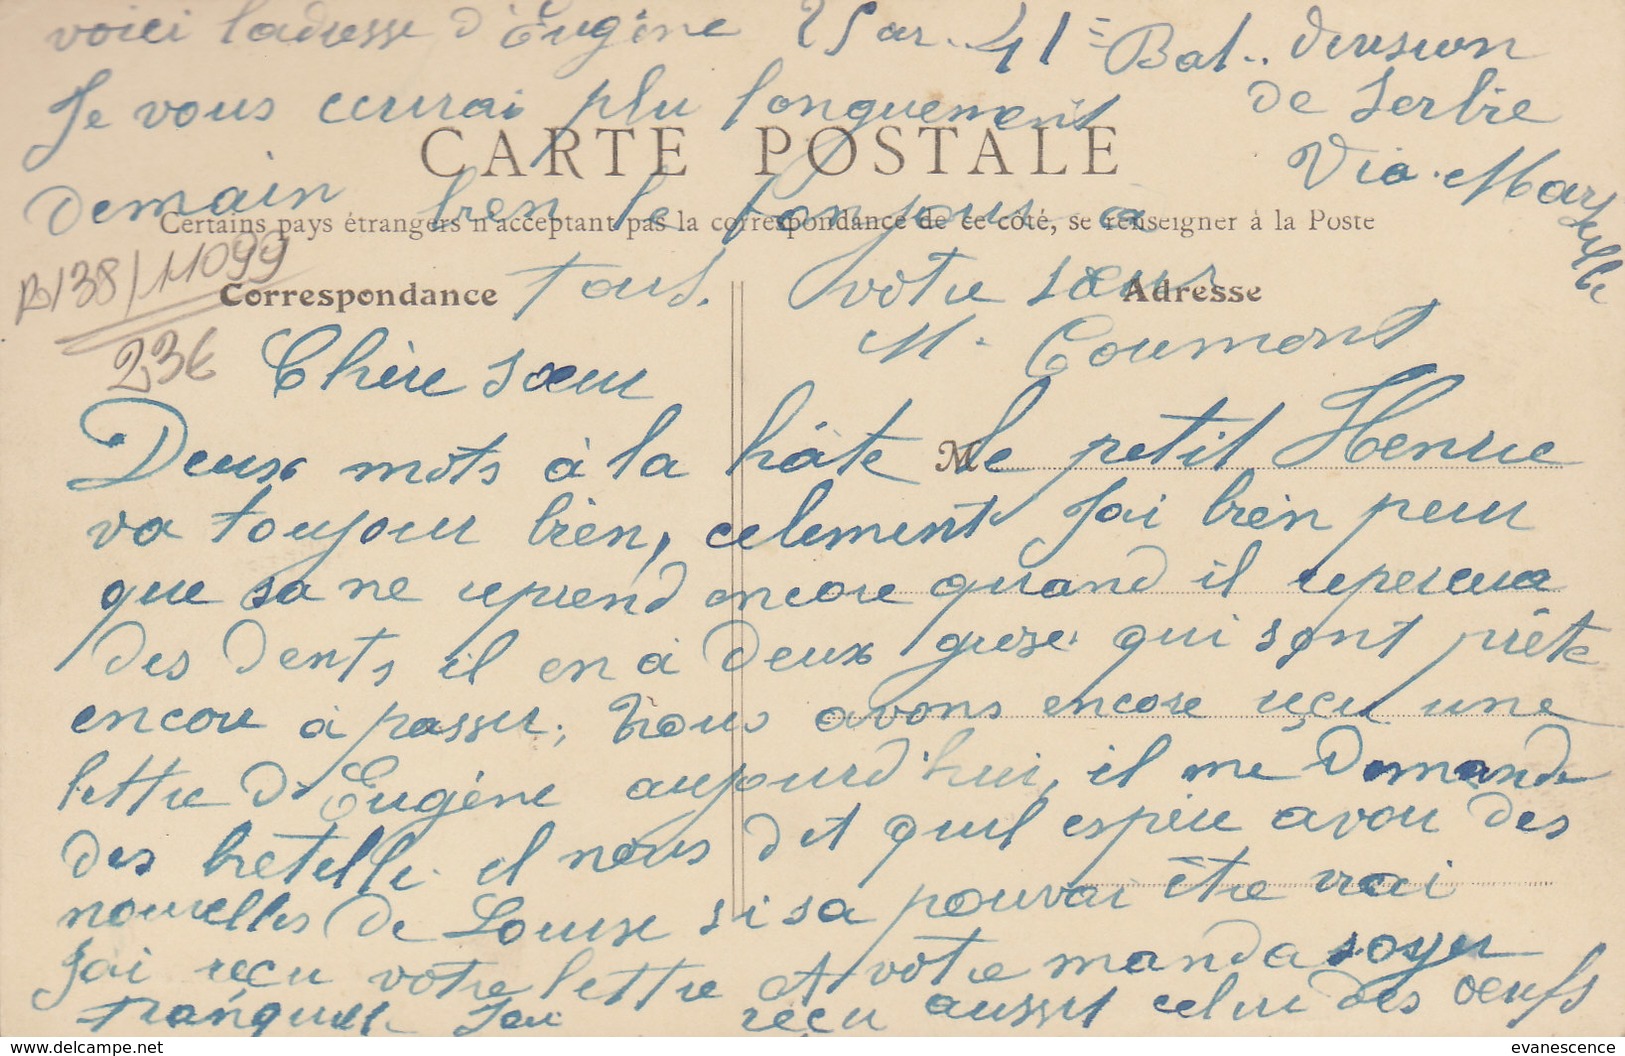 voici l'adresse d'Eugène 2 Par. 41e Bat.. division
de Serbie
Via. Marseille
Je vous écrirai plu longuement
demain bien le bonjour a
tous. votre sœur
M. Coumont
CARTE POSTALE
Certains pays étrangers n'acceptant pas la correspondance de ce côté, se renseigner à la Poste
Correspondance
Adresse
R/38/11099
23€
Chère sœur
M
Deux mots à la hâte le petit Henrie
va toujour bien, celement j'ai bien peur
que sa ne reprend encore quand il repercera
des dents il en à deux grose qui sont prête
encore à passer; nous avons encore reçu une
lettre d'Eugène aujourd'hui, il me demande
des bretelle. il nous dit quil espère avoir des
nouvelles de Louise si sa pouvai être vrai
J'ai reçu votre lettre et votre manda soyer
tranquille J'ai reçu aussit celui des oeufs
evanescence